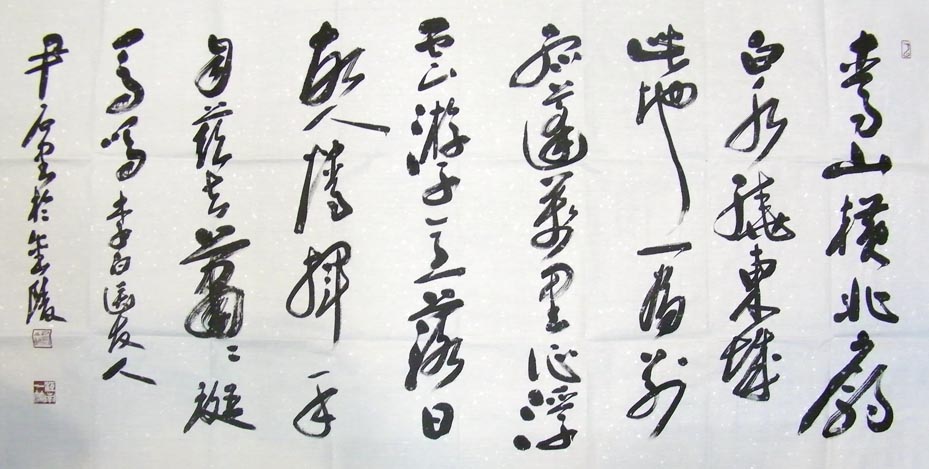 青山橫北廓
白水繞東城
此地一為別
孤蓬萬里征浮
雲游子意落日
故人情揮手
自茲去蕭々班
馬鳴 李白送友人
尹 書於金陵